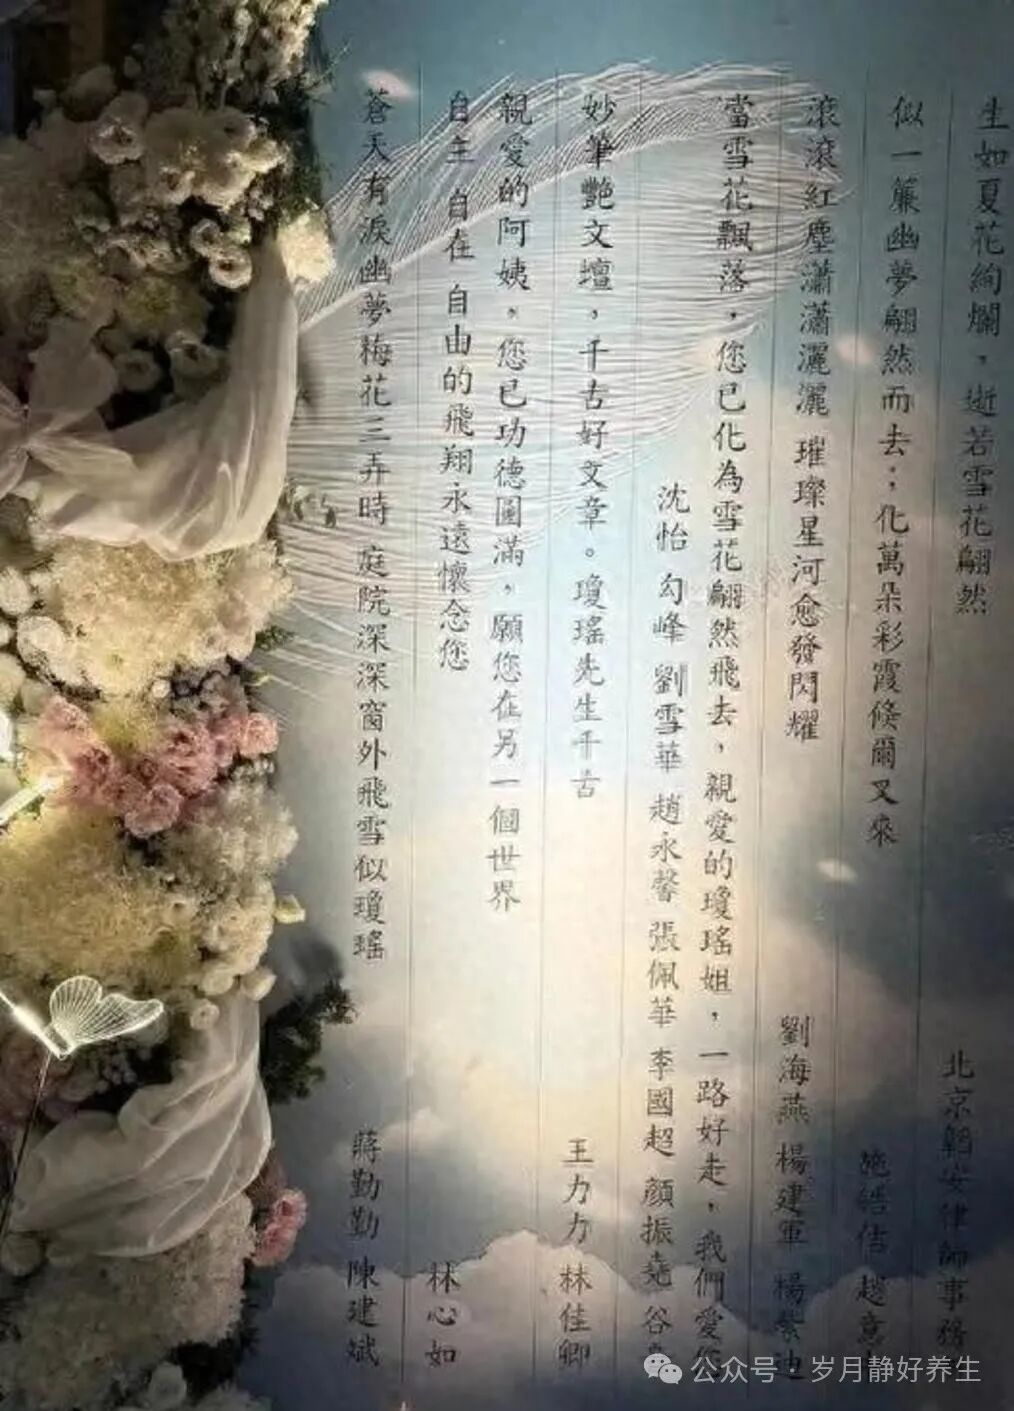 生如夏花絢爛，逝若雪花翩然
北京韜安律師事務
似一簾幽夢翩然而去；化萬朵彩霞倏爾又來
趙意
滾滾紅塵瀟瀟灑灑 璀璨星河愈發閃耀
劉海燕 楊建軍 楊紫迪
當雪花飄落，您已化為雪花翩然飛去，親愛的瓊瑤姐，一路好走，我們愛您
沈怡 勾峰 劉雪華 趙永馨 張佩華 李國超 顏振堯 谷
妙筆艷文壇，千古好文章。瓊瑤先生千古
王力力 林佳卿
親愛的阿姨，您已功德圓滿，願您在另一個世界
自主 自在 自由的飛翔永遠懷念您
林心如
蒼天有淚幽夢梅花三弄時 庭院深深窗外飛雪似瓊瑤
蔣勤勤 陳建斌
公众号·岁月静好养生